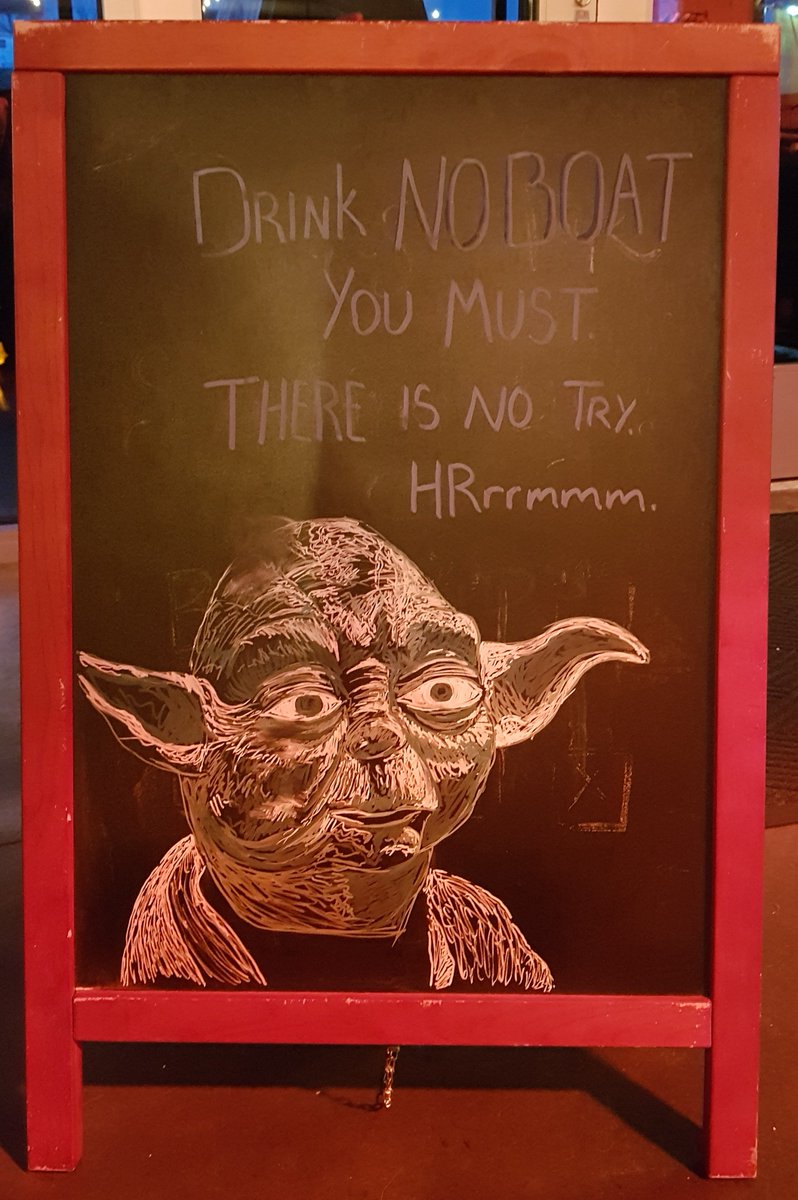 DRINK NOBOAT
YOU MUST.
THERE IS NO TRY.
HRrrmmm.